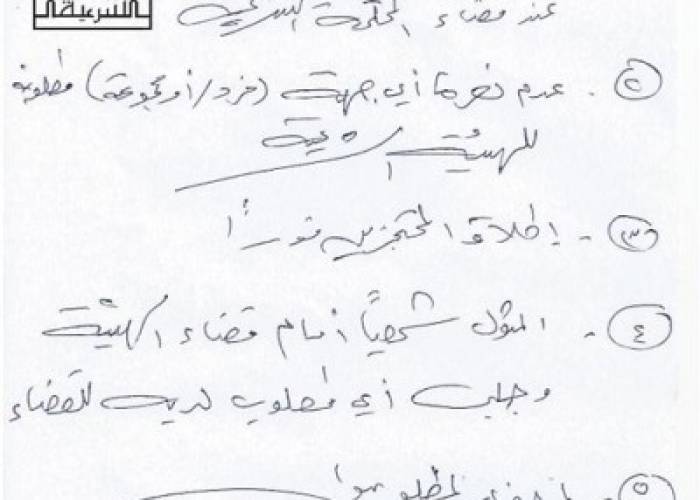 الشرعية
عند قضاء المحكمة الشرعية
٢. عدم نصرة أي جهة (فرد/أو مجموعة) مطلوبة
للهيئة الشرعية
٣- إطلاق المحتجزين فوراً
٤- المثول شخصياً أمام قضاء الهيئة
وجلب أي مطلوب لديه للقضاء
٥